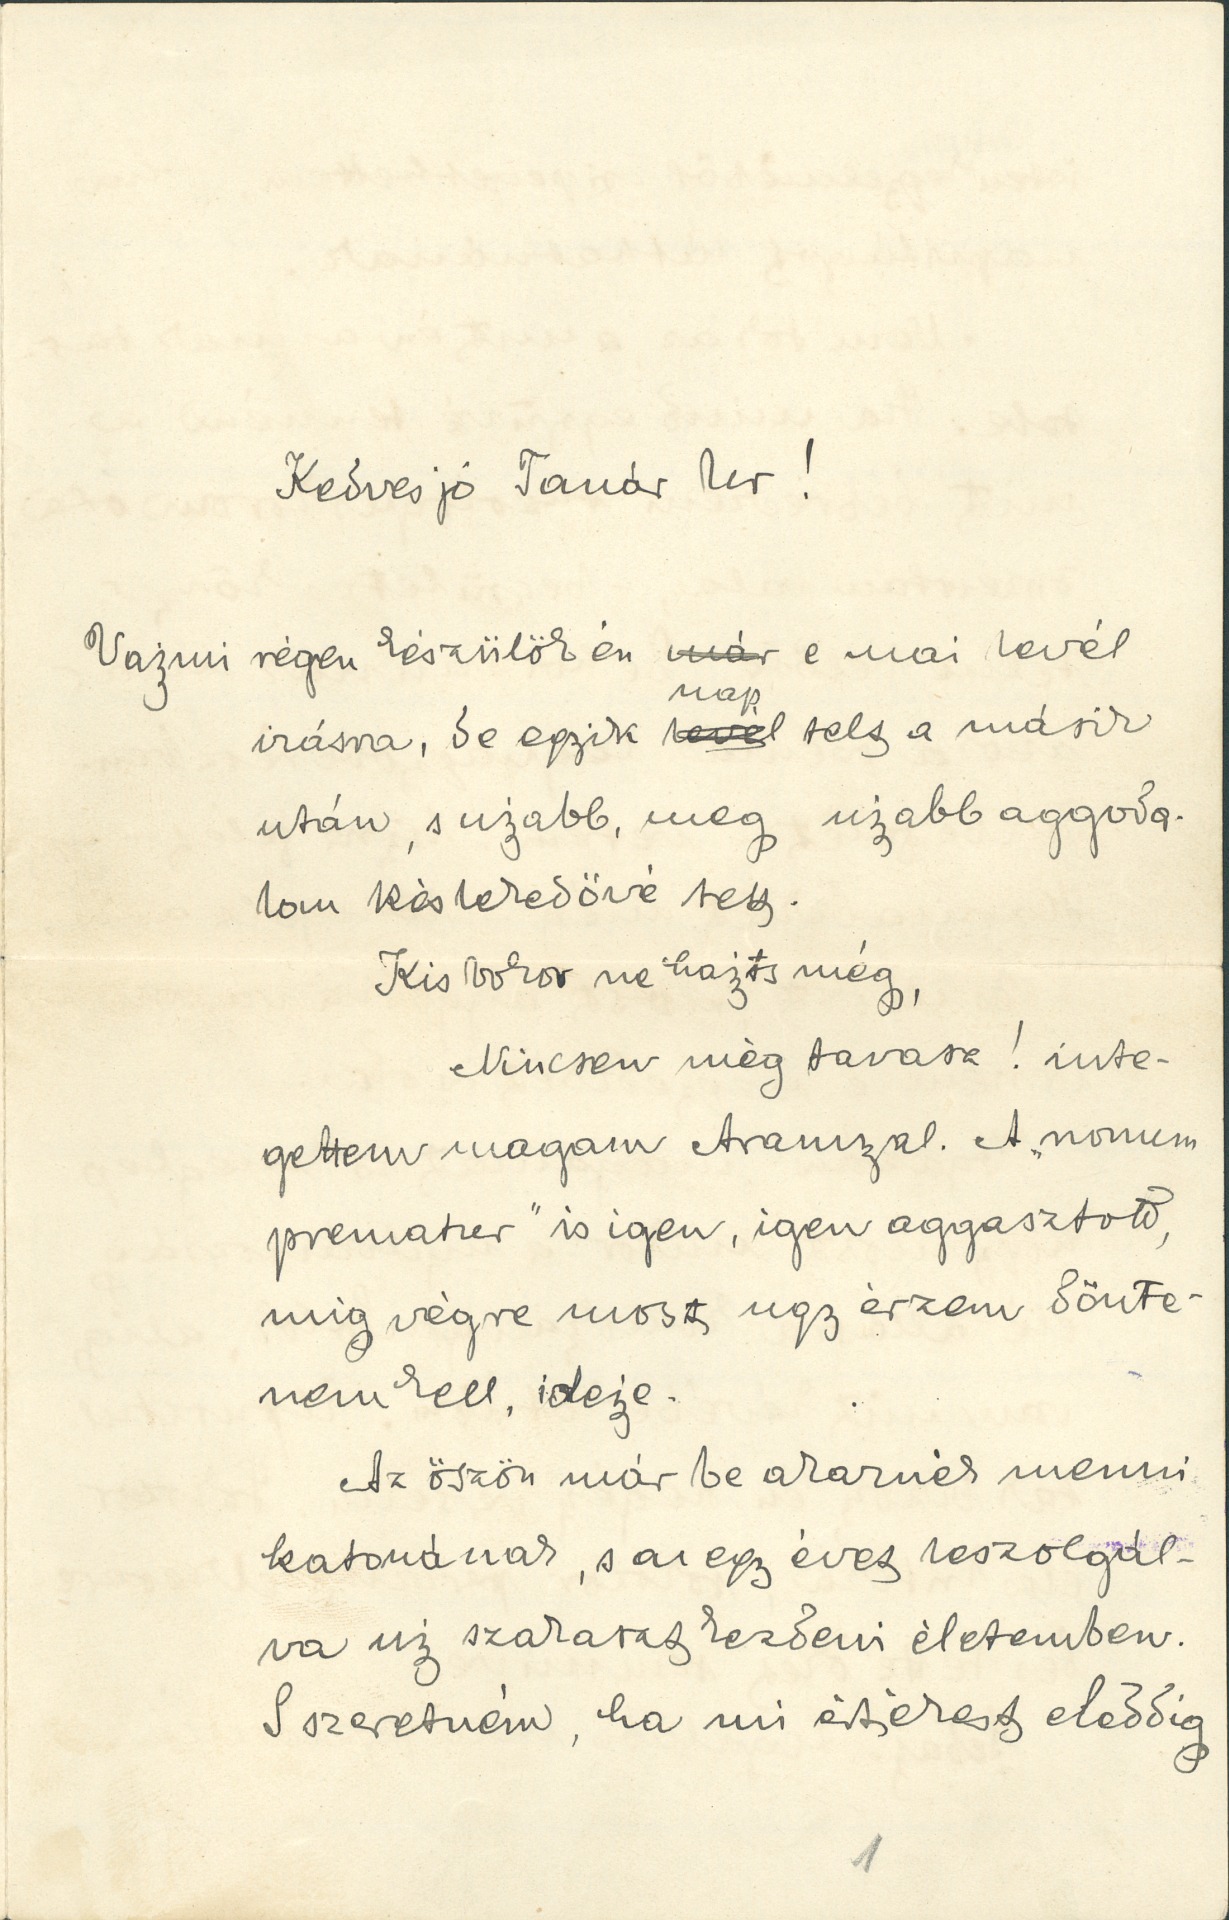 Kedves jó Tanár Ur!
Vajmi régen készülök én már e mai levél
nap
irásra, de egyik levél telt a másik
után, s ujabb, meg ujabb aggoda-
lom késlekedövé tett.
Kis bokor ne hajts még,
Nincsen még tavasz! inte-
gettem magam Arannyal. A „nonum
prematur" is igen, igen aggasztott,
mig végre most ugy érzem dönte-
nem kell, ideje.
Az öszön már be akarnék menni
katonának, s az egy évet leszolgál-
va uj szakaszt kezdeni életemben.
S szeretném, ha mi értékest eleddig
1